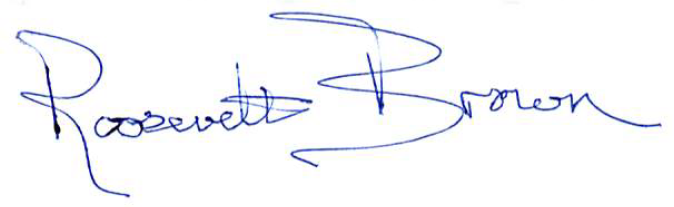 Roosevelt Brown